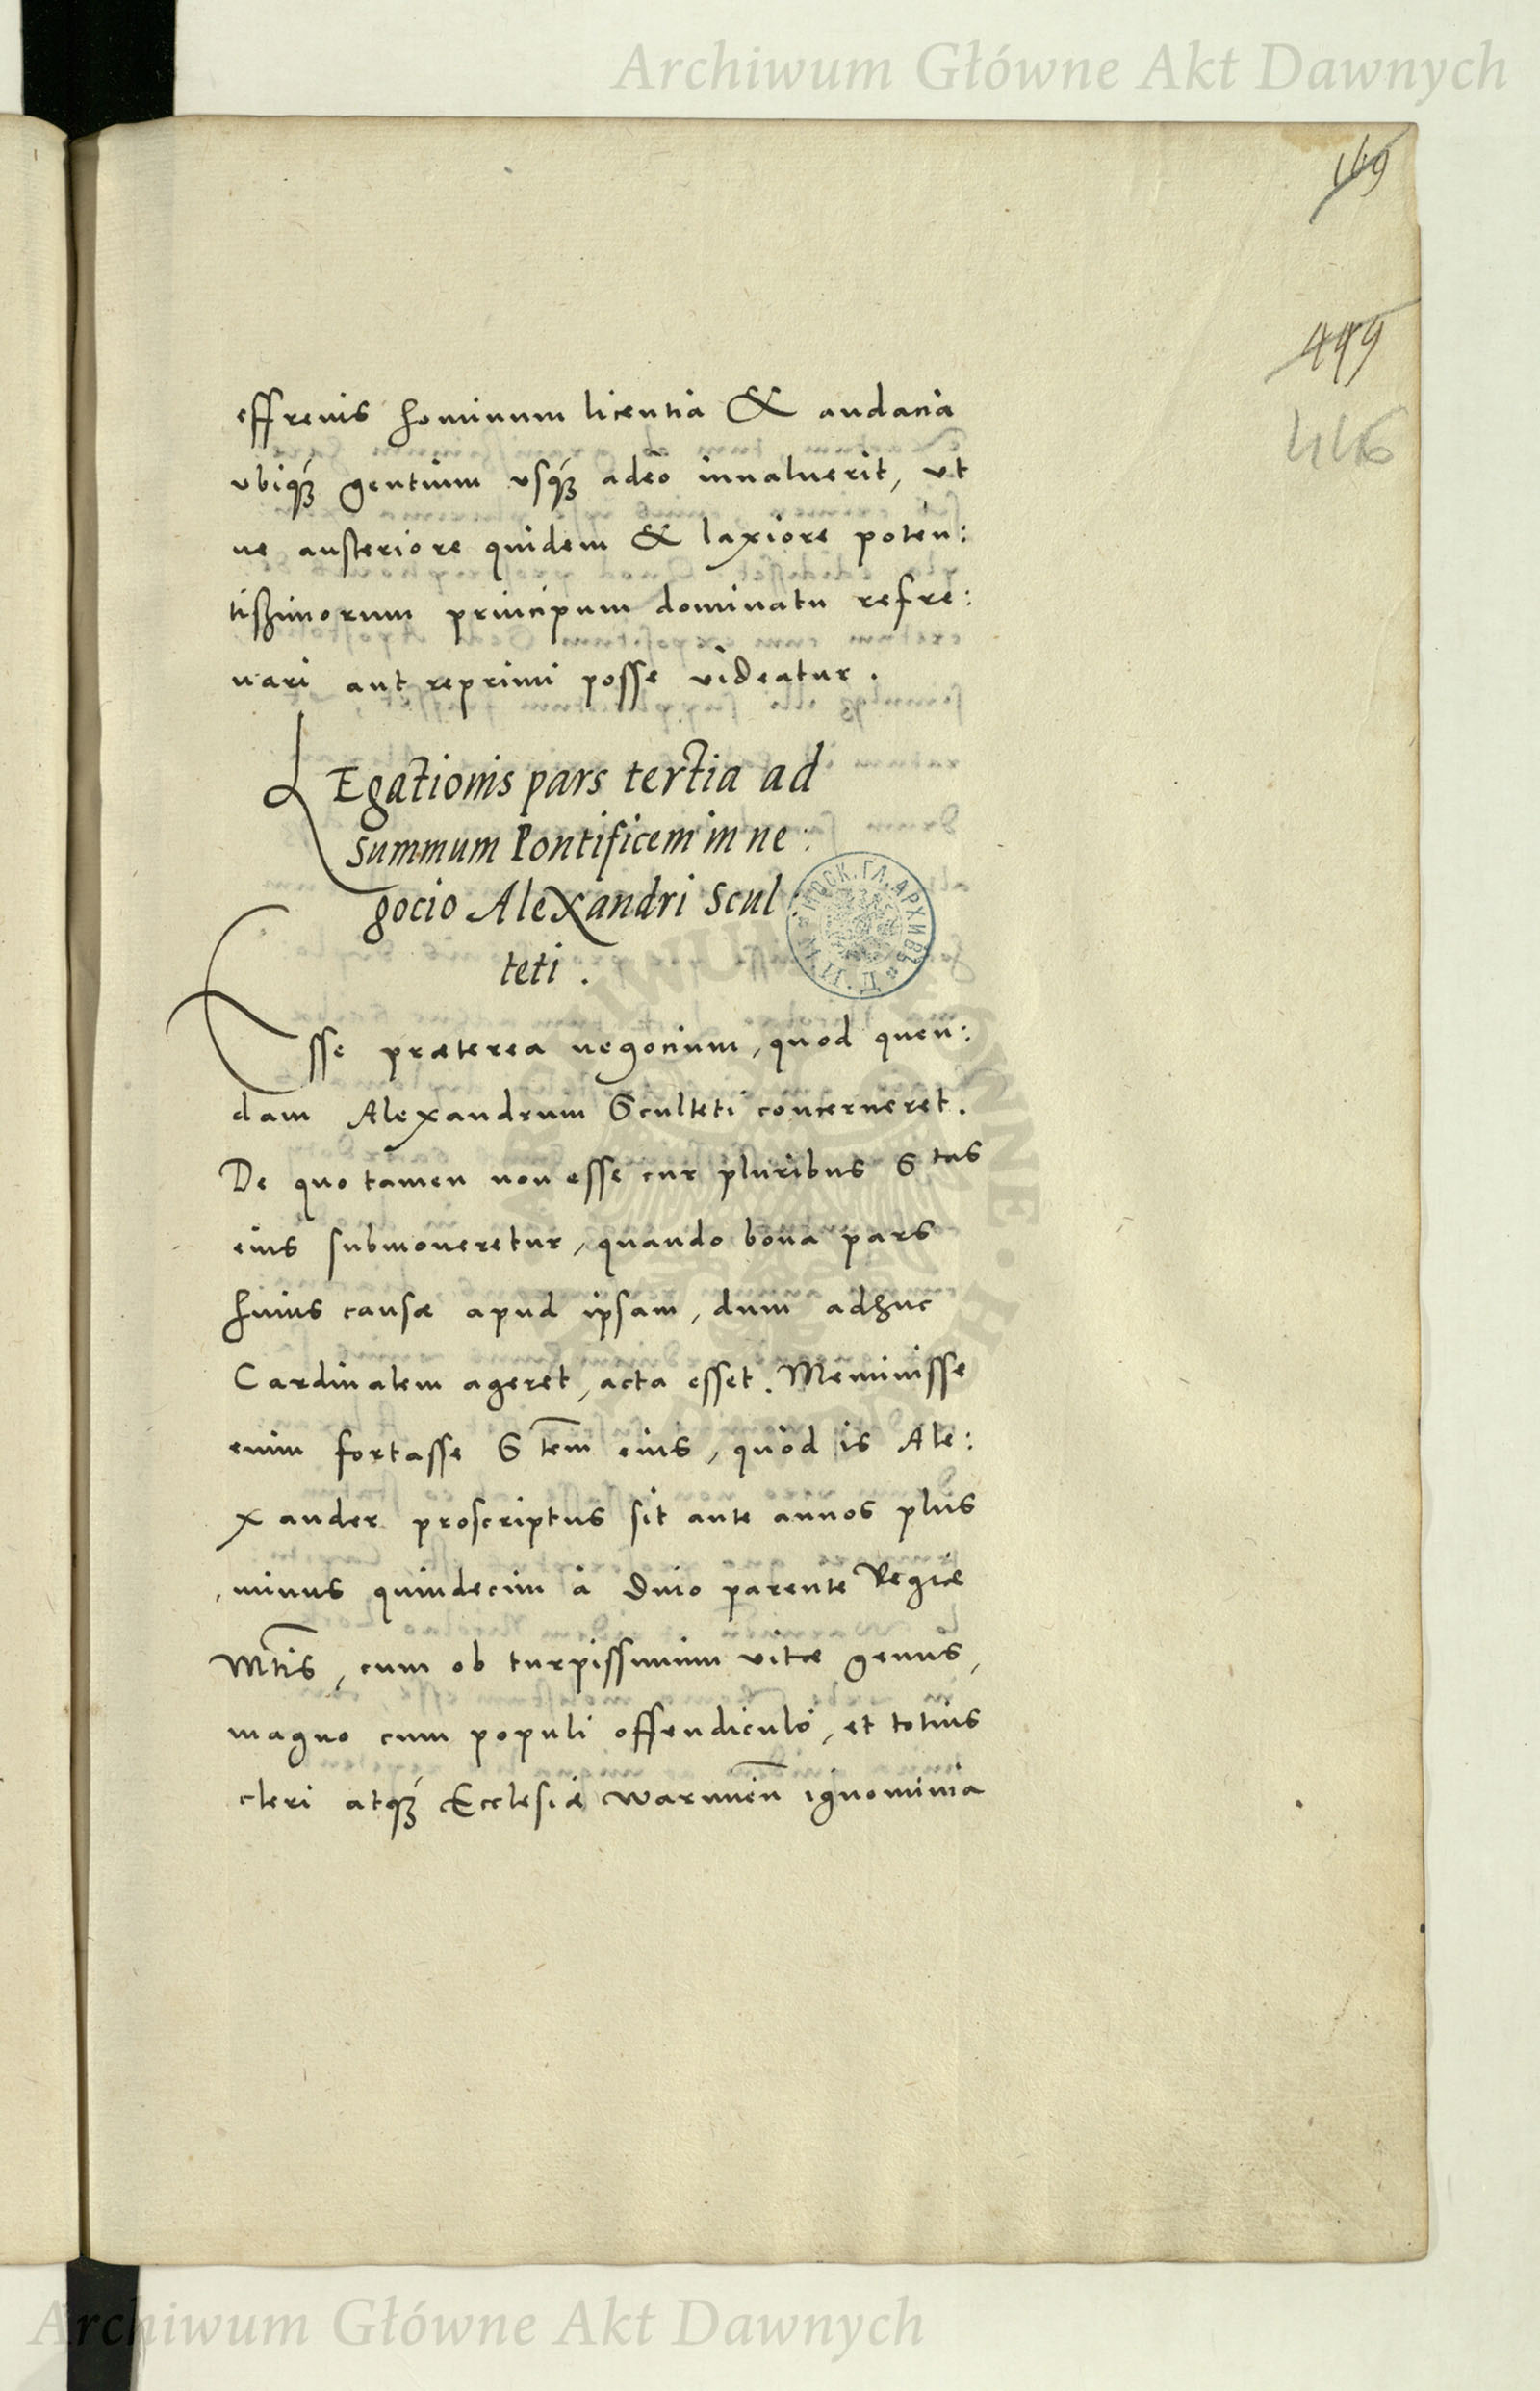 Archiwum Główne Akt Dawnych
169
449
446
effrenis hominum licentia & audacia
vbiq́ꝫ gentium vsq́ꝫ adeò inualuerit, vt
ne austeriore quidem & laxiore poten:
tißimorum principum dominatu refre:
nari aut reprimi posse videatur.
LEgationis pars tertia ad
Summum Pontificem in ne:
gocio Alexandri Scul:
teti.
Esse præterea negocium, quod quen:
dam Alexandrum Sculteti concerneret.
De quo tamen non esse cur pluribus S tas
eius submoneretur, quando bona pars
huius causæ apud ipsam, dum adhuc
Cardinalem ageret, acta esset. Meminisse
enim fortasse S tem̄ eius, quòd is Ale:
xander proscriptus sit ante annos plus
minus quindecim à Diuo parente Regiæ
Mtis, cum ob turpissimum vitæ genus,
magno cum populi offendiculo, et totius
cleri atq́ꝫ Ecclesiæ warmień ignominia
Archiwum Główne Akt Dawnych